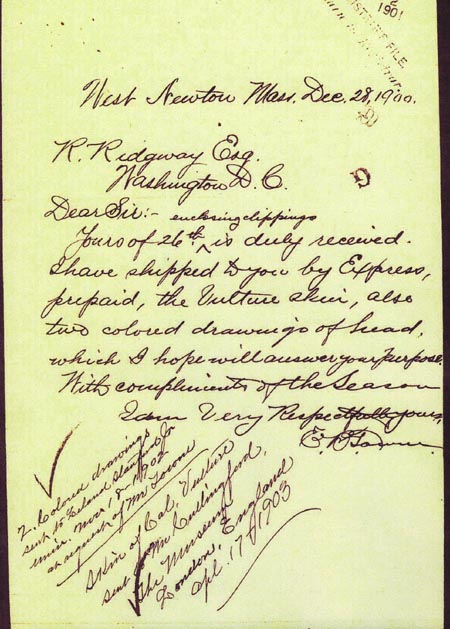 1901
FILE.
West Newton Mass. Dec. 28, 1900.
R. Ridgway Esq.
Washington D. C.
Dear Sir:-
enclosing clippings
Yours of 26th ^ is duly received.
I have shipped to you by Express,
prepaid, the Vulture skin, also
two colored drawings of head,
which I hope will answer your purpose.
With compliments of the Season
I am Very Respectfully yours,
2 Colored drawings
sent to Leland Stanford Jr
univ. Nov. 18, 1902
at request of Mr
Skin of Cal. Vulture
sent to Mr Cullingford,
The Museum
London, England
Apl. 17 1903